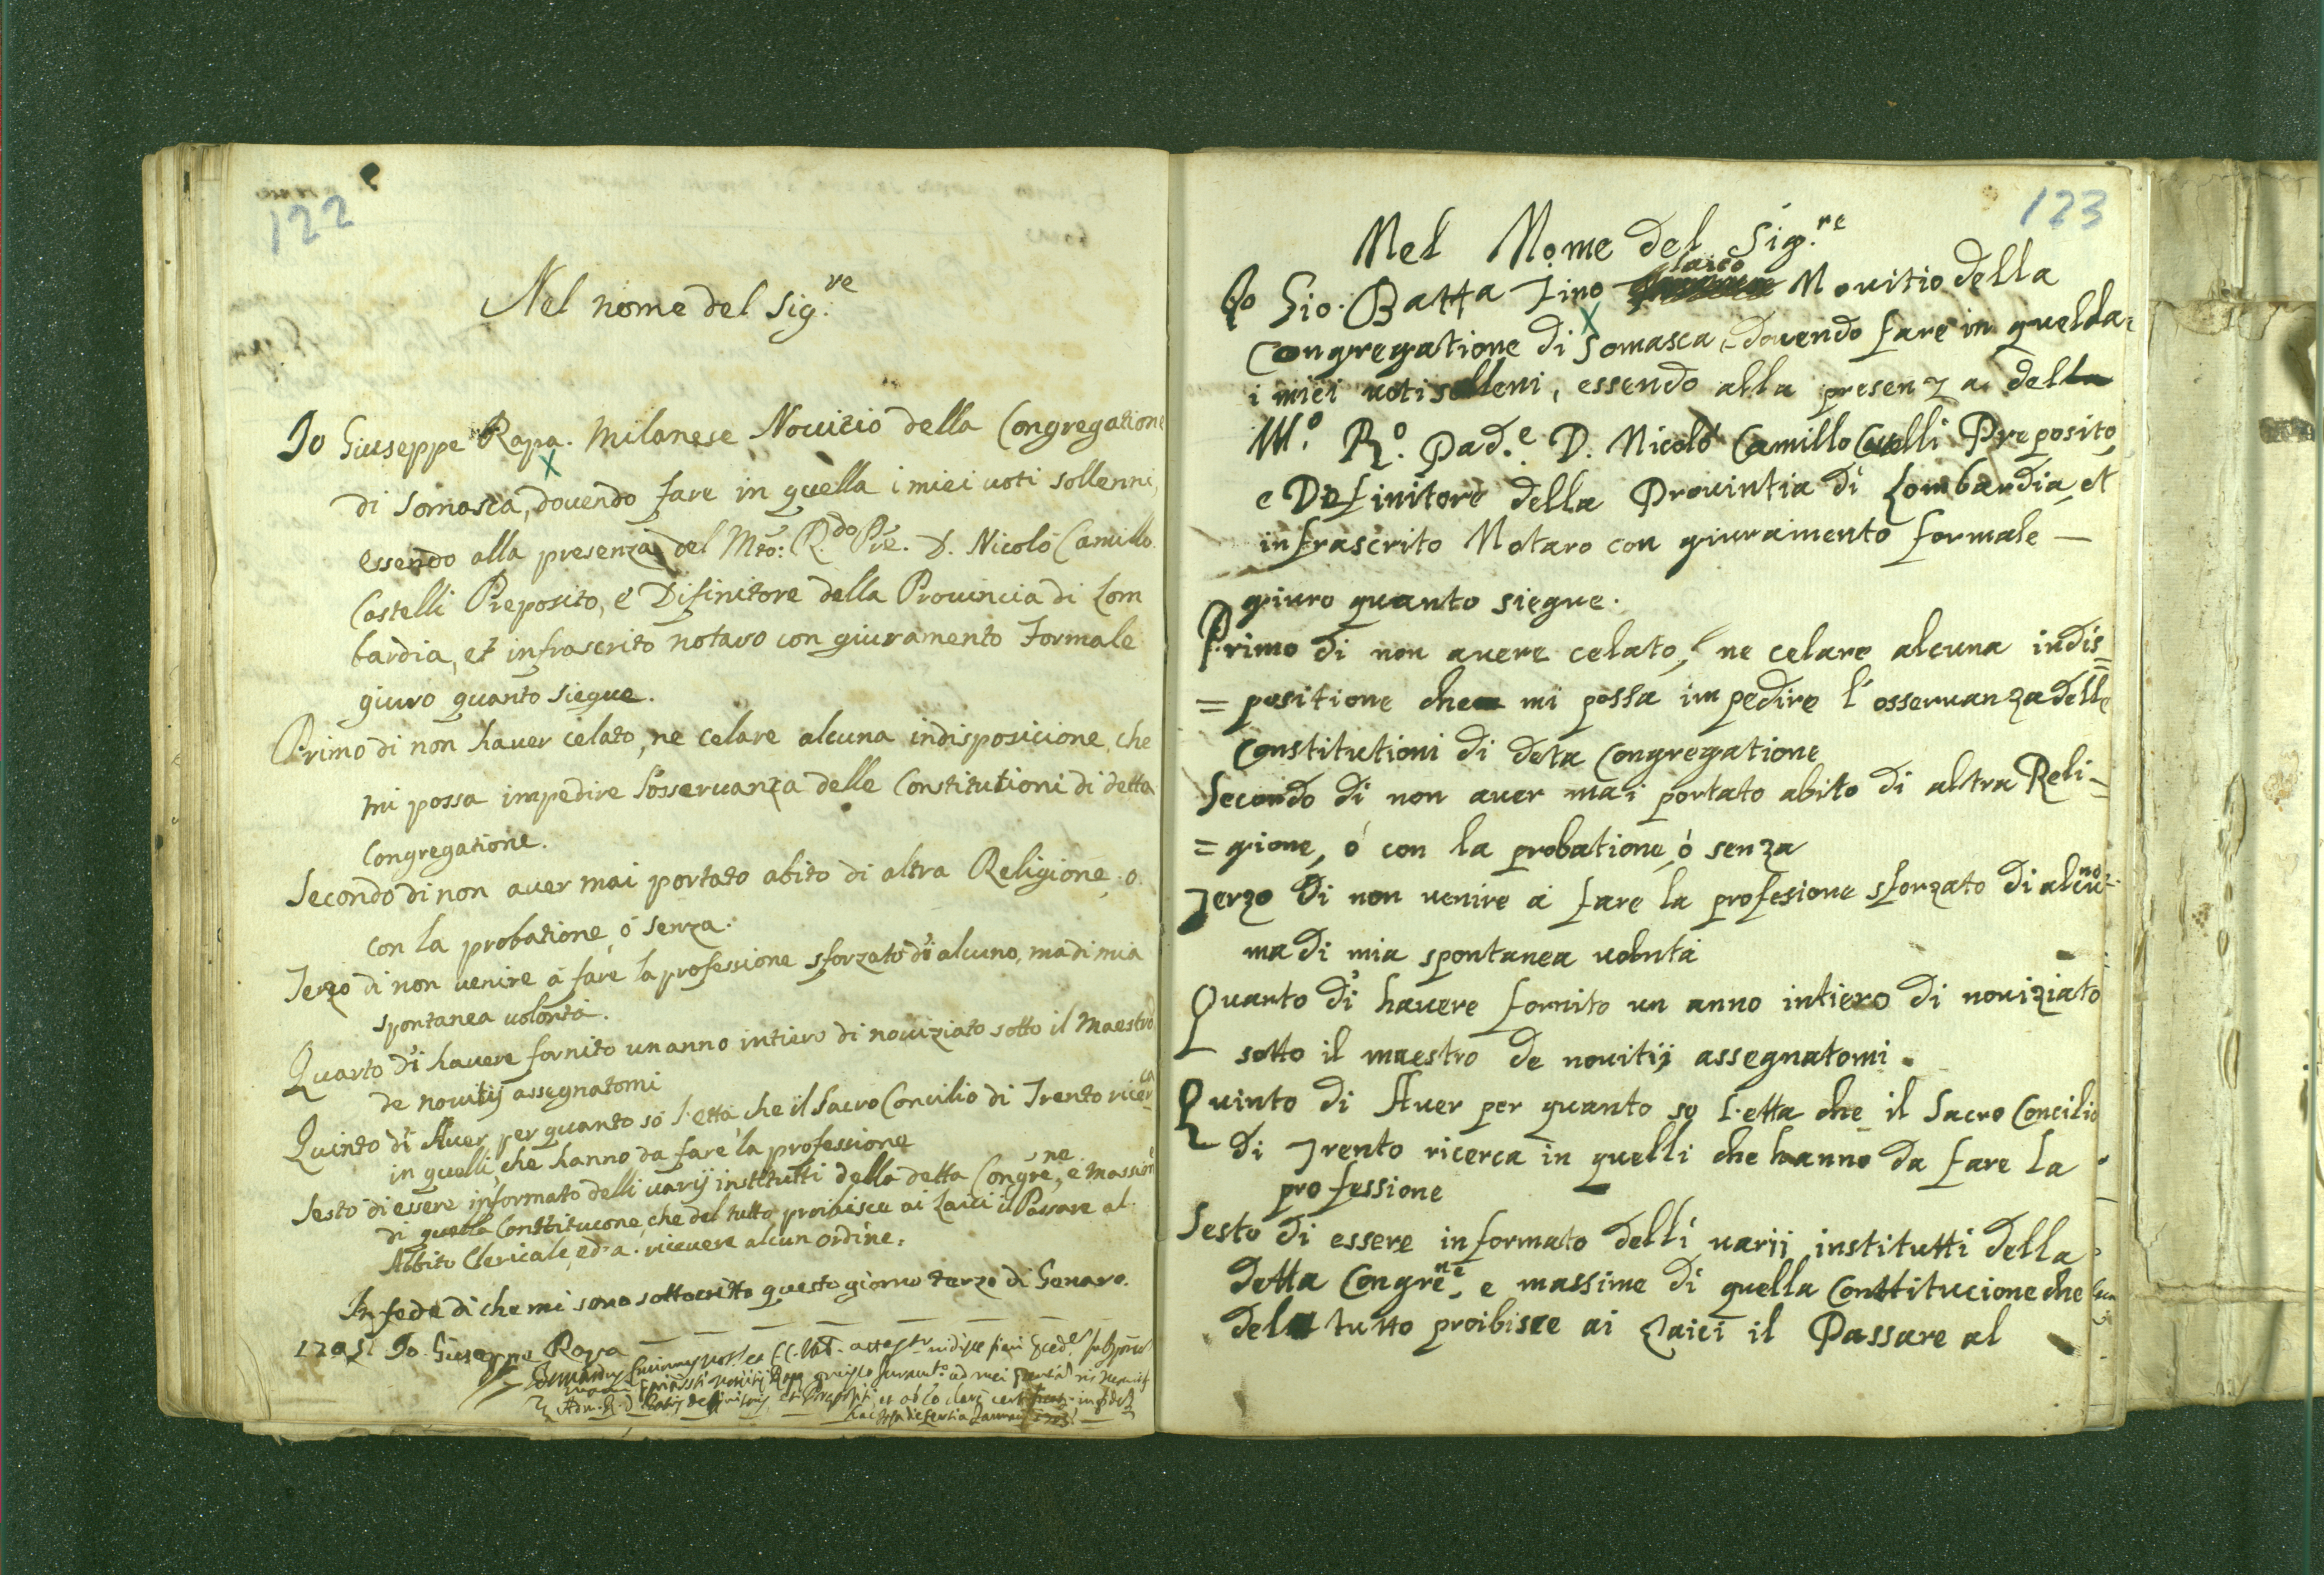 122
Nel nome del Sig.re
Io Giuseppe Rapa. Milanese Novitio della Congregatione
di Somasca, dovendo fare in quella i miei voti sollenni,
essendo alla presenza del Mto: R.do Pre. D. Nicolò Camillo
Castelli Preposito, e Difinitore della Provincia di Lom
bardia, et infrascrito notaro con giuramento Formale
giuro quanto siegue.
Primo di non haver celato, ne celare alcuna indisposicione, che
mi possa impedire l'osservanza delle Constitutioni di detta
Congregatione.
Secondo di non aver mai portato abito di altra Religione, o
con la probatione, ò senza.
Terzo di non venire à fare la professione sforzato di alcuno, ma di mia
spontanea volontà.
Quarto di havere fornito un anno intiero di noviziato sotto il Maestro
de novitij assegnatomi
Quinto di Aver, per quanto sò l'età, che il Sacro Concilio di Trento ricerca
in quelli, che hanno da fare la professione
Sesto di essere informato delli varij instituti della detta Congre.ne, e massime
di quella Constitucone, che del tutto proibisce ai Laici il Passare al
Abbito Clericale, ed a ricevere alcun ordine.
In fede di che mi sono sottoscritto questo giorno terzo di Genaro.
1705. Io Giuseppe Rapa
123
Nel Nome del Sig.re
Io Gio. Batta Fino laico Novitio della
Congregatione di Somasca, dovendo fare in quella
i miei voti solleni, essendo alla presenza del
M.o R.o Pad.e D. Nicolò Camillo Preposito,
e Definitore della Provintia di Lombardia, et
infrascrito Notaro con giuramento formale —
giuro quanto siegue.
Primo di non avere celato, ne celare alcuna indis=
=positione che mi possa impedire l'osservanza delle
Constitutioni di deta Congregatione
Secondo di non aver mai portato abito di altra Reli=
=gione, ò con la probatione, ò senza
Terzo di non venire à fare la profesione sforzato di alcuno
ma di mia spontanea voluta
Quanto di havere fornito un anno intiero di noviziato
sotto il maestro de novitij assegnatomi.
Quinto di Aver per quanto so l'etta che il Sacro Concilio
di Trento ricerca in quelli che hanno da fare la
professione
Sesto di essere informato delli varii institutti della
detta Congre.ne, e massime di quella Conttitucione che
del tutto proibisce ai Laici il Passare al